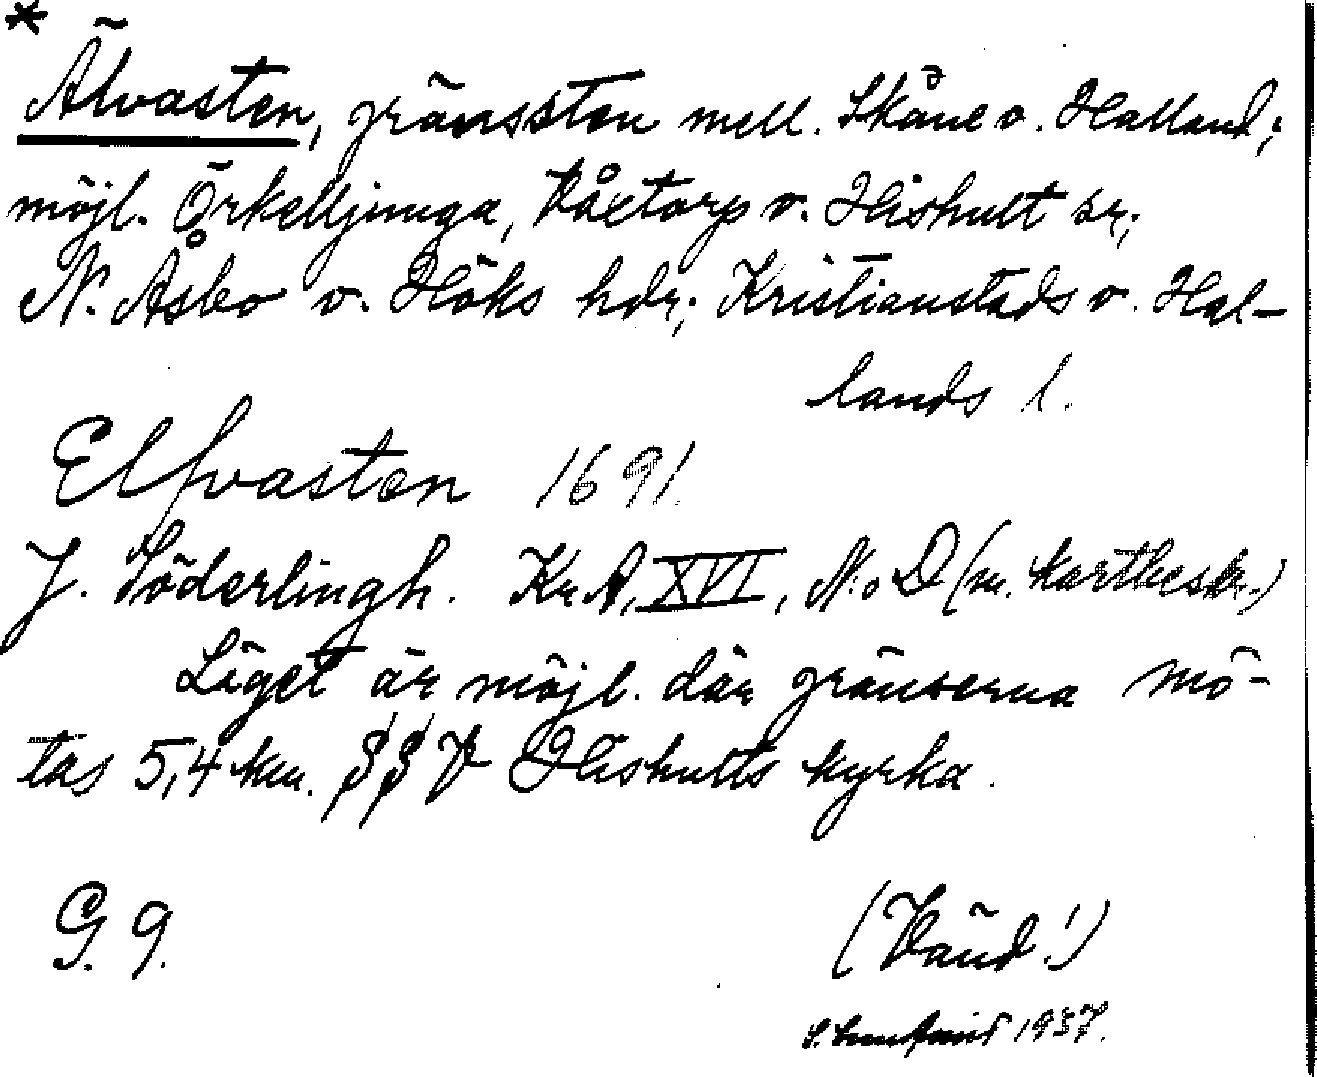 *
Älvasten, gränssten mell. Skåne o. Halland;
möjl. Örkelljunga, Våxtorp o. Hishult sr;
N. Åsbo o. Höks hdr; Kristianstads o. Hal-
lands l.
Elfvasten 1691.
J. Söderlingh. Kr A, XVI, N:o D (m. kartbeskr.)
Läget är möjl. där gränserna mö-
tas 5,4 km. SSV Hishults kyrka.
G. 9.
(Vänd!)
1937.